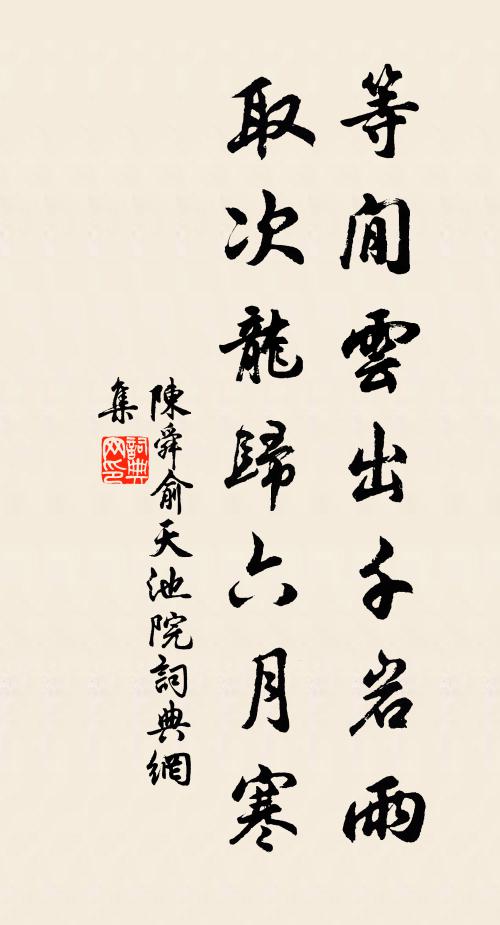 等閒雲出千岩雨
取次龍歸六月寒
陳舜俞天池院詞典網
集
詞典
网印